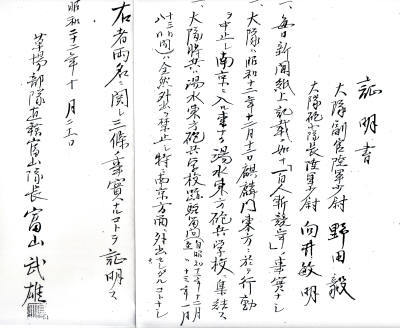 証明書
大隊副官陸軍少尉 野田毅
大隊砲小隊長陸軍少尉 向井敏明
一、毎日新聞紙上記載ノ如キ「百人斬競争」ノ事実ナシ
一、大隊ハ昭和十二年十二月十二日麒麟門東方ニ於テ行動
ヲ中止シ南京ニ入ル事ナク湯水東方砲兵学校ニ集結ス
一、大隊将兵ハ湯水東方砲兵学校跡駐留間(自昭和十二年十二月
十三日 至十三年一月 間)ハ全然外出ヲ禁止シ特ニ南京方面ニ外出セシメタルコトナシ
右者両名ニ関シ三條ノ事実ナルコトヲ証明ス
昭和二十二年十月二二日
草場部隊直轄富山隊長 富山武雄